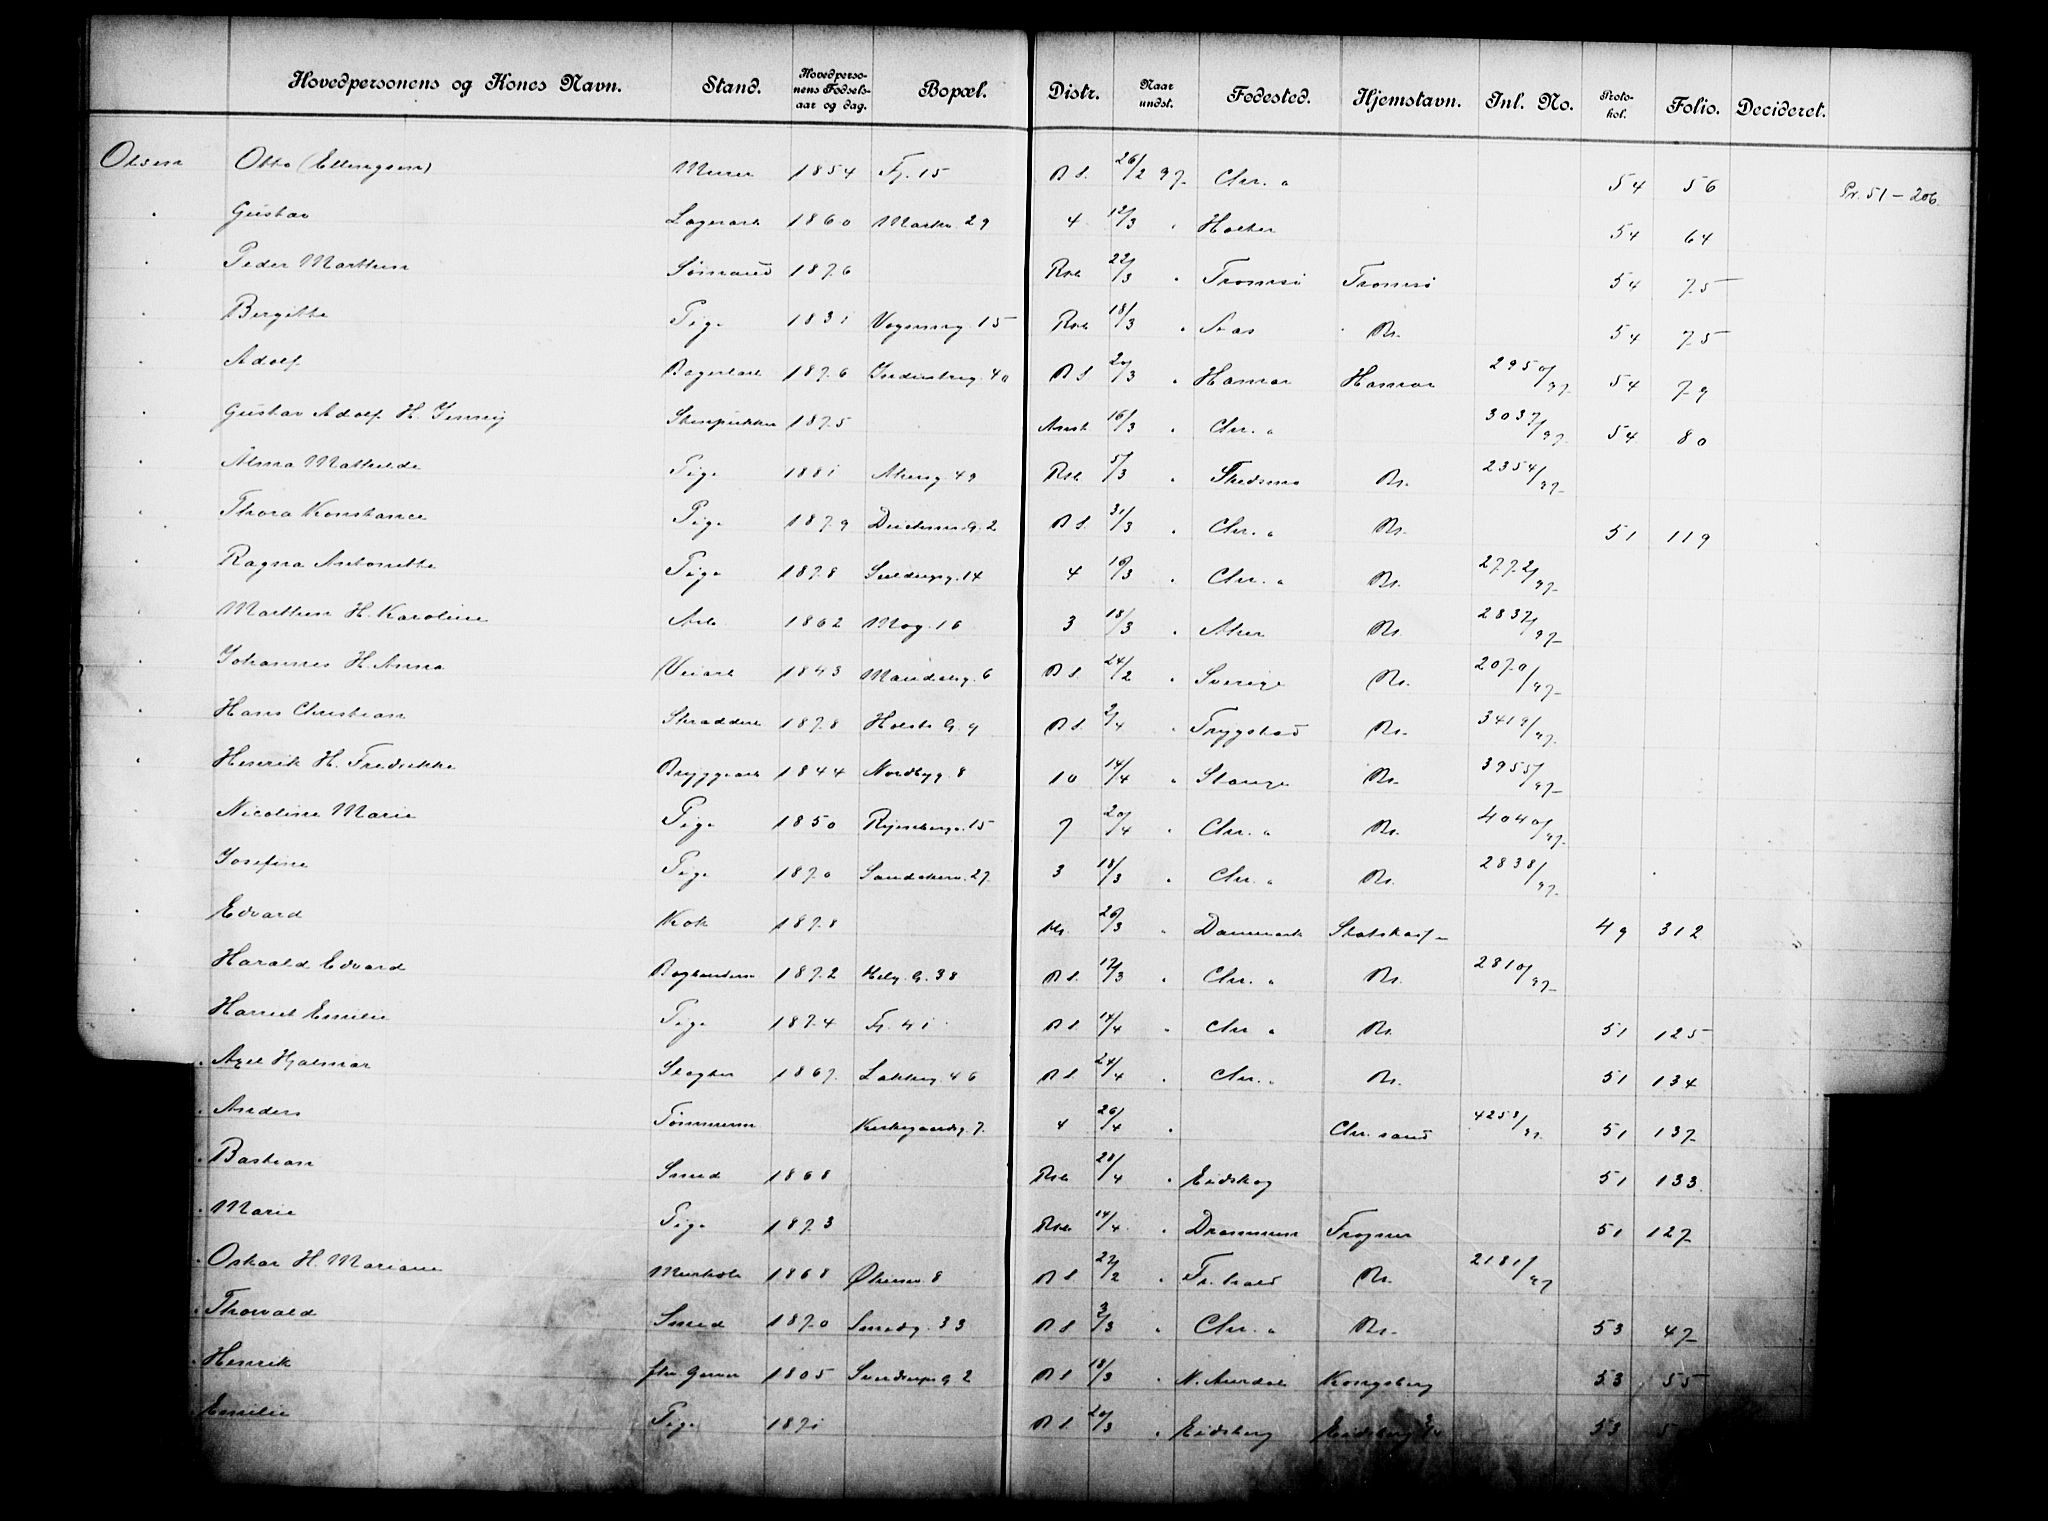 Hovedpersonens og Kones Navn. Stand. Hovedpersonens Fødselsaar og dag. Bopæl. Distr. Naar undst. Fødested. Hjemstavn. Inl. No. Protokol. Folio. Decideret.
Olsen Otto (Ellingsen) Murer 1854 Fj. 15 B S. 26/2 97 Chr. a 54 56 Pr. 51 - 206
" Gustav Lagerarb 1860 Markv. 29 4 12/3 " Holter 54 64
" Peder Marthin Sømand 1876 Rsb 22/3 " Tromsø Tromsø 54 75
" Bergitte Pige 1831 Vognmg. 15 Rsb 18/3 " Aas Kr. 54 75
" Adolf Bagerlærl 1876 40 B S 20/3 " Hamar Hamar 2950/97 54 79
" Gustav Adolf H. Jenny 1875 16/3 " Chr. a 3037/97 54 80
" Alma Mathilde Pige 1881 Akersg 49 Rsb 5/3 " Skedsmo Kr. 2354/97
" Thora Konstance Pige 1879 Deichmns G. 2 B S. 31/3 " Chr. a Kr. 51 119
" Ragna Antonette Pige 1878 14 4 16/3 " Chr. a Kr. 2772/97
" Marthin H. Karoline Arb 1862 Mog. 16 3 18/3 " Aker Kr. 2837/97
" Johannes H. Anna Veiarb 1843 Maridalsg. 6 B S. 24/2 " Sverige Kr. 2070/97
" Hans Christian Skrædderl 1878 Holsts G. 9 B S. 2/4 " Trygstad Kr. 3419/97
" Henrik H. Fredrikke Bryggearb 1844 Nordbyg. 8 10 14/4 " Stange Kr. 3955/97
" Nicoline Marie Pige 1850 15 7 20/4 " Chr. a Kr. 4040/97
" Josefine Pige 1870 Sandakerv. 27 3 18/3 " Chr. a Kr. 2838/97
" Edvard Kok 1878 26/3 " Danmark Statskasse 49 312
" Harald Edvard Boghandler 1872 Helg. G. 38 B S. 12/3 " Chr. a Kr. 2810/97
" Harriet Emilie Pige 1874 Fj. 41 B S. 14/4 " Chr. a Kr. 51 125
" Axel Hjalmar Slagter 1867 Lakkeg. 46 B S. 24/4 " Chr. a Kr. 51 134
" Anders Tømmerm Kirkegaardsg. 7. 4 26/4 " Chr. sand 4253/97 51 137
" Bastian Smed 1868 Rsb 28/4 " Eidskog 51 133
" Marie Pige 1873 Rsb 14/4 " Drammen Frogner 51 127
" Oskar H. Mariane Murhdl 1868 Økernv. 8 B S 22/2 " Fr. hald Kr. 2181/97
" Thorvald Smed 1870 Smedg. 33 B S 3/3 " Chr. a Kr. 53 47
" Henrik 1805 Sverdrups G 2 B S 18/3 " N. Aurdal Kongsberg 53 55
" Emilie Pige 1871 B S. 20/3 " Eidsberg Eidsberg 53